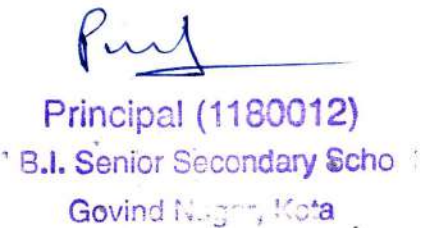 Principal (1180012)
B.I. Senior Secondary Scho
Govind Nagar, Kota